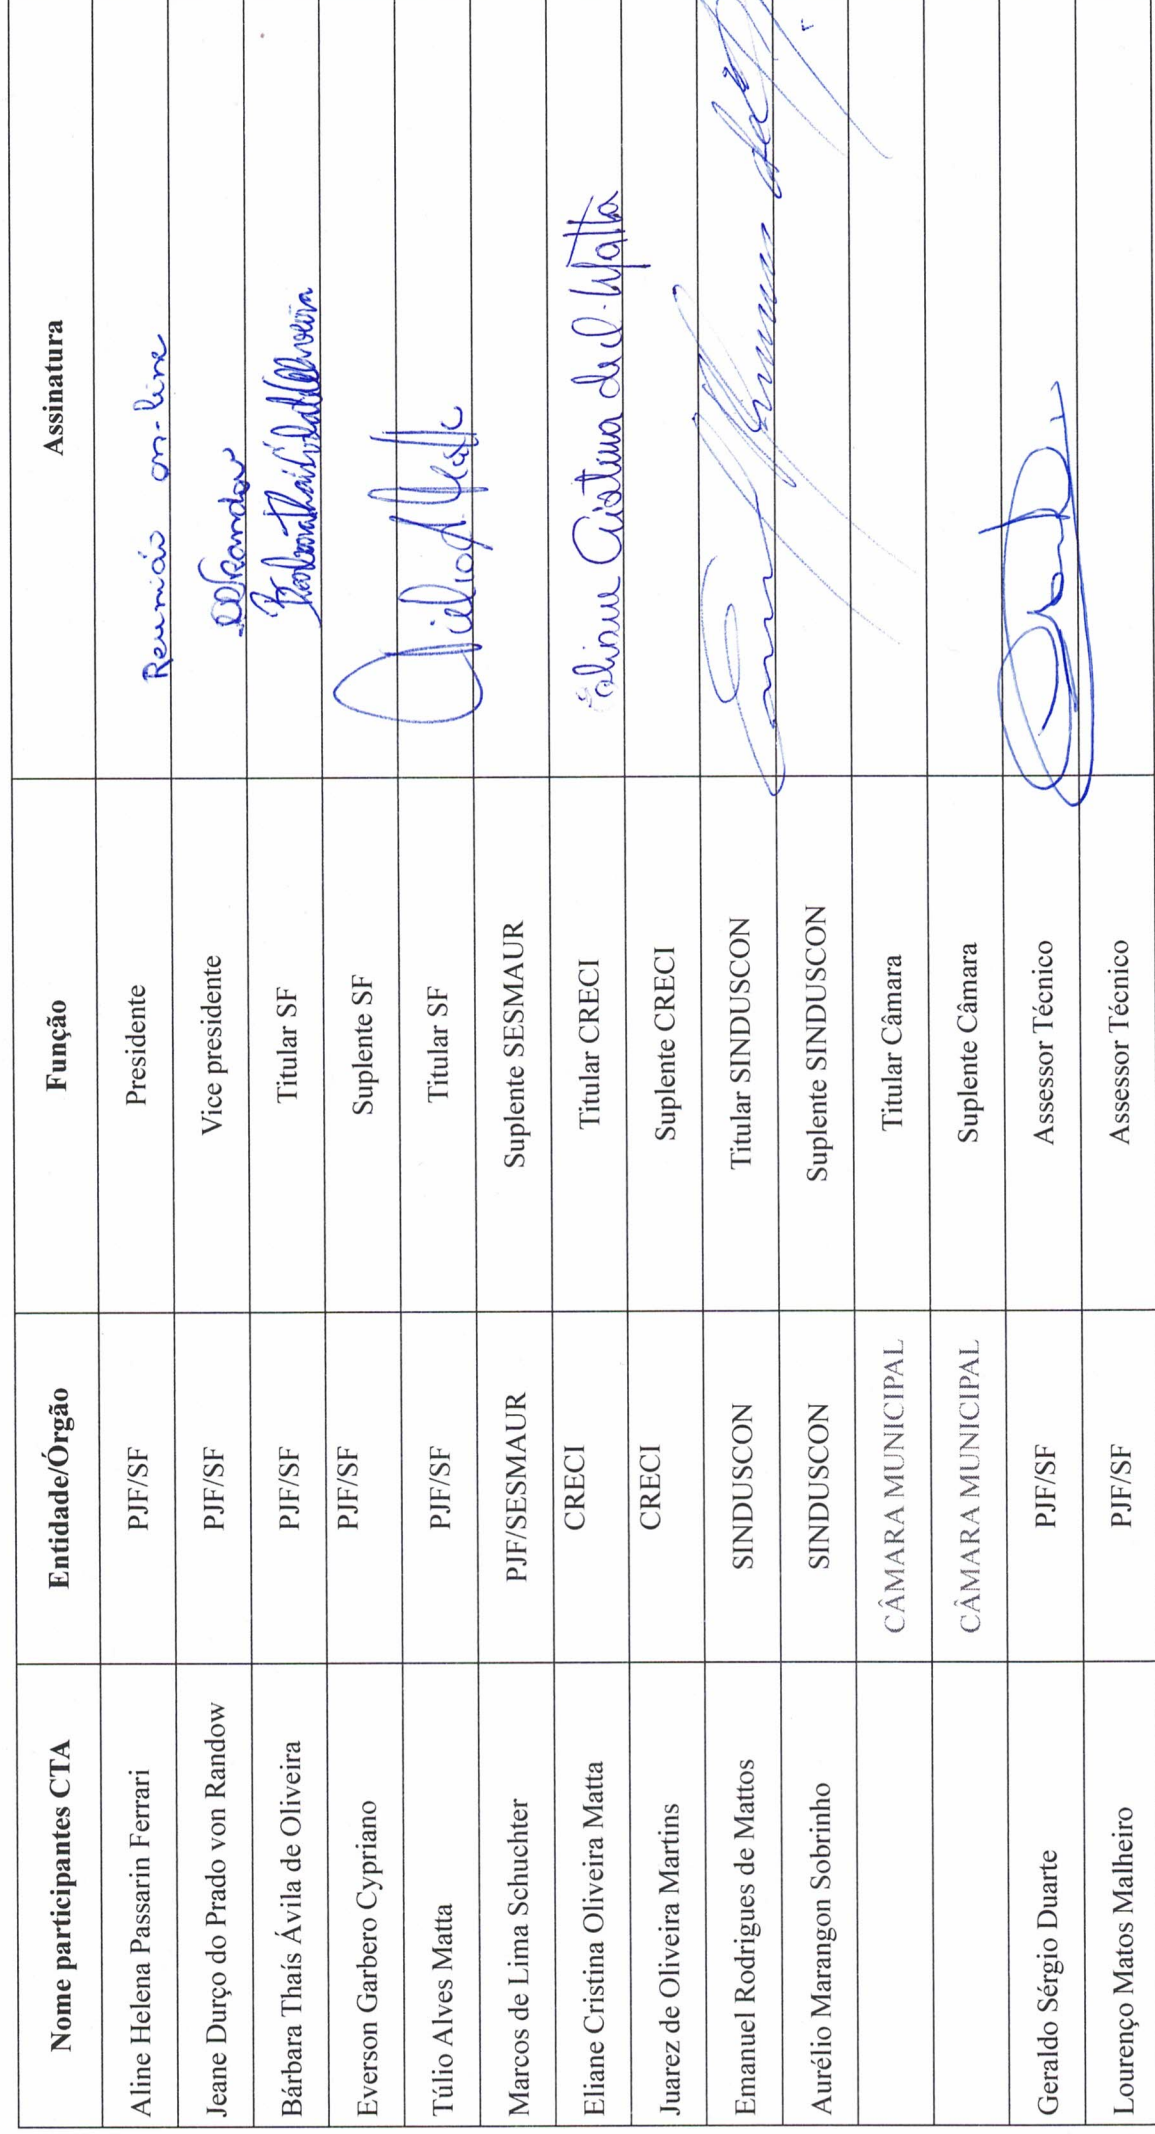 Nome participantes CTA Entidade/Órgão Função Assinatura
Aline Helena Passarin Ferrari PJF/SF Presidente Reunião on-line
Jeane Durço do Prado von Randow PJF/SF Vice presidente
Bárbara Thaís Ávila de Oliveira PJF/SF Titular SF
Everson Garbero Cypriano PJF/SF Suplente SF
Túlio Alves Matta PJF/SF Titular SF
Marcos de Lima Schuchter PJF/SESMAUR Suplente SESMAUR
Eliane Cristina Oliveira Matta CRECI Titular CRECI Eliane Cristina de O. Matta
Juarez de Oliveira Martins CRECI Suplente CRECI
Emanuel Rodrigues de Mattos SINDUSCON Titular SINDUSCON
Aurélio Marangon Sobrinho SINDUSCON Suplente SINDUSCON
CÂMARA MUNICIPAL Titular Câmara
CÂMARA MUNICIPAL Suplente Câmara
Geraldo Sérgio Duarte PJF/SF Assessor Técnico
Lourenço Matos Malheiro PJF/SF Assessor Técnico